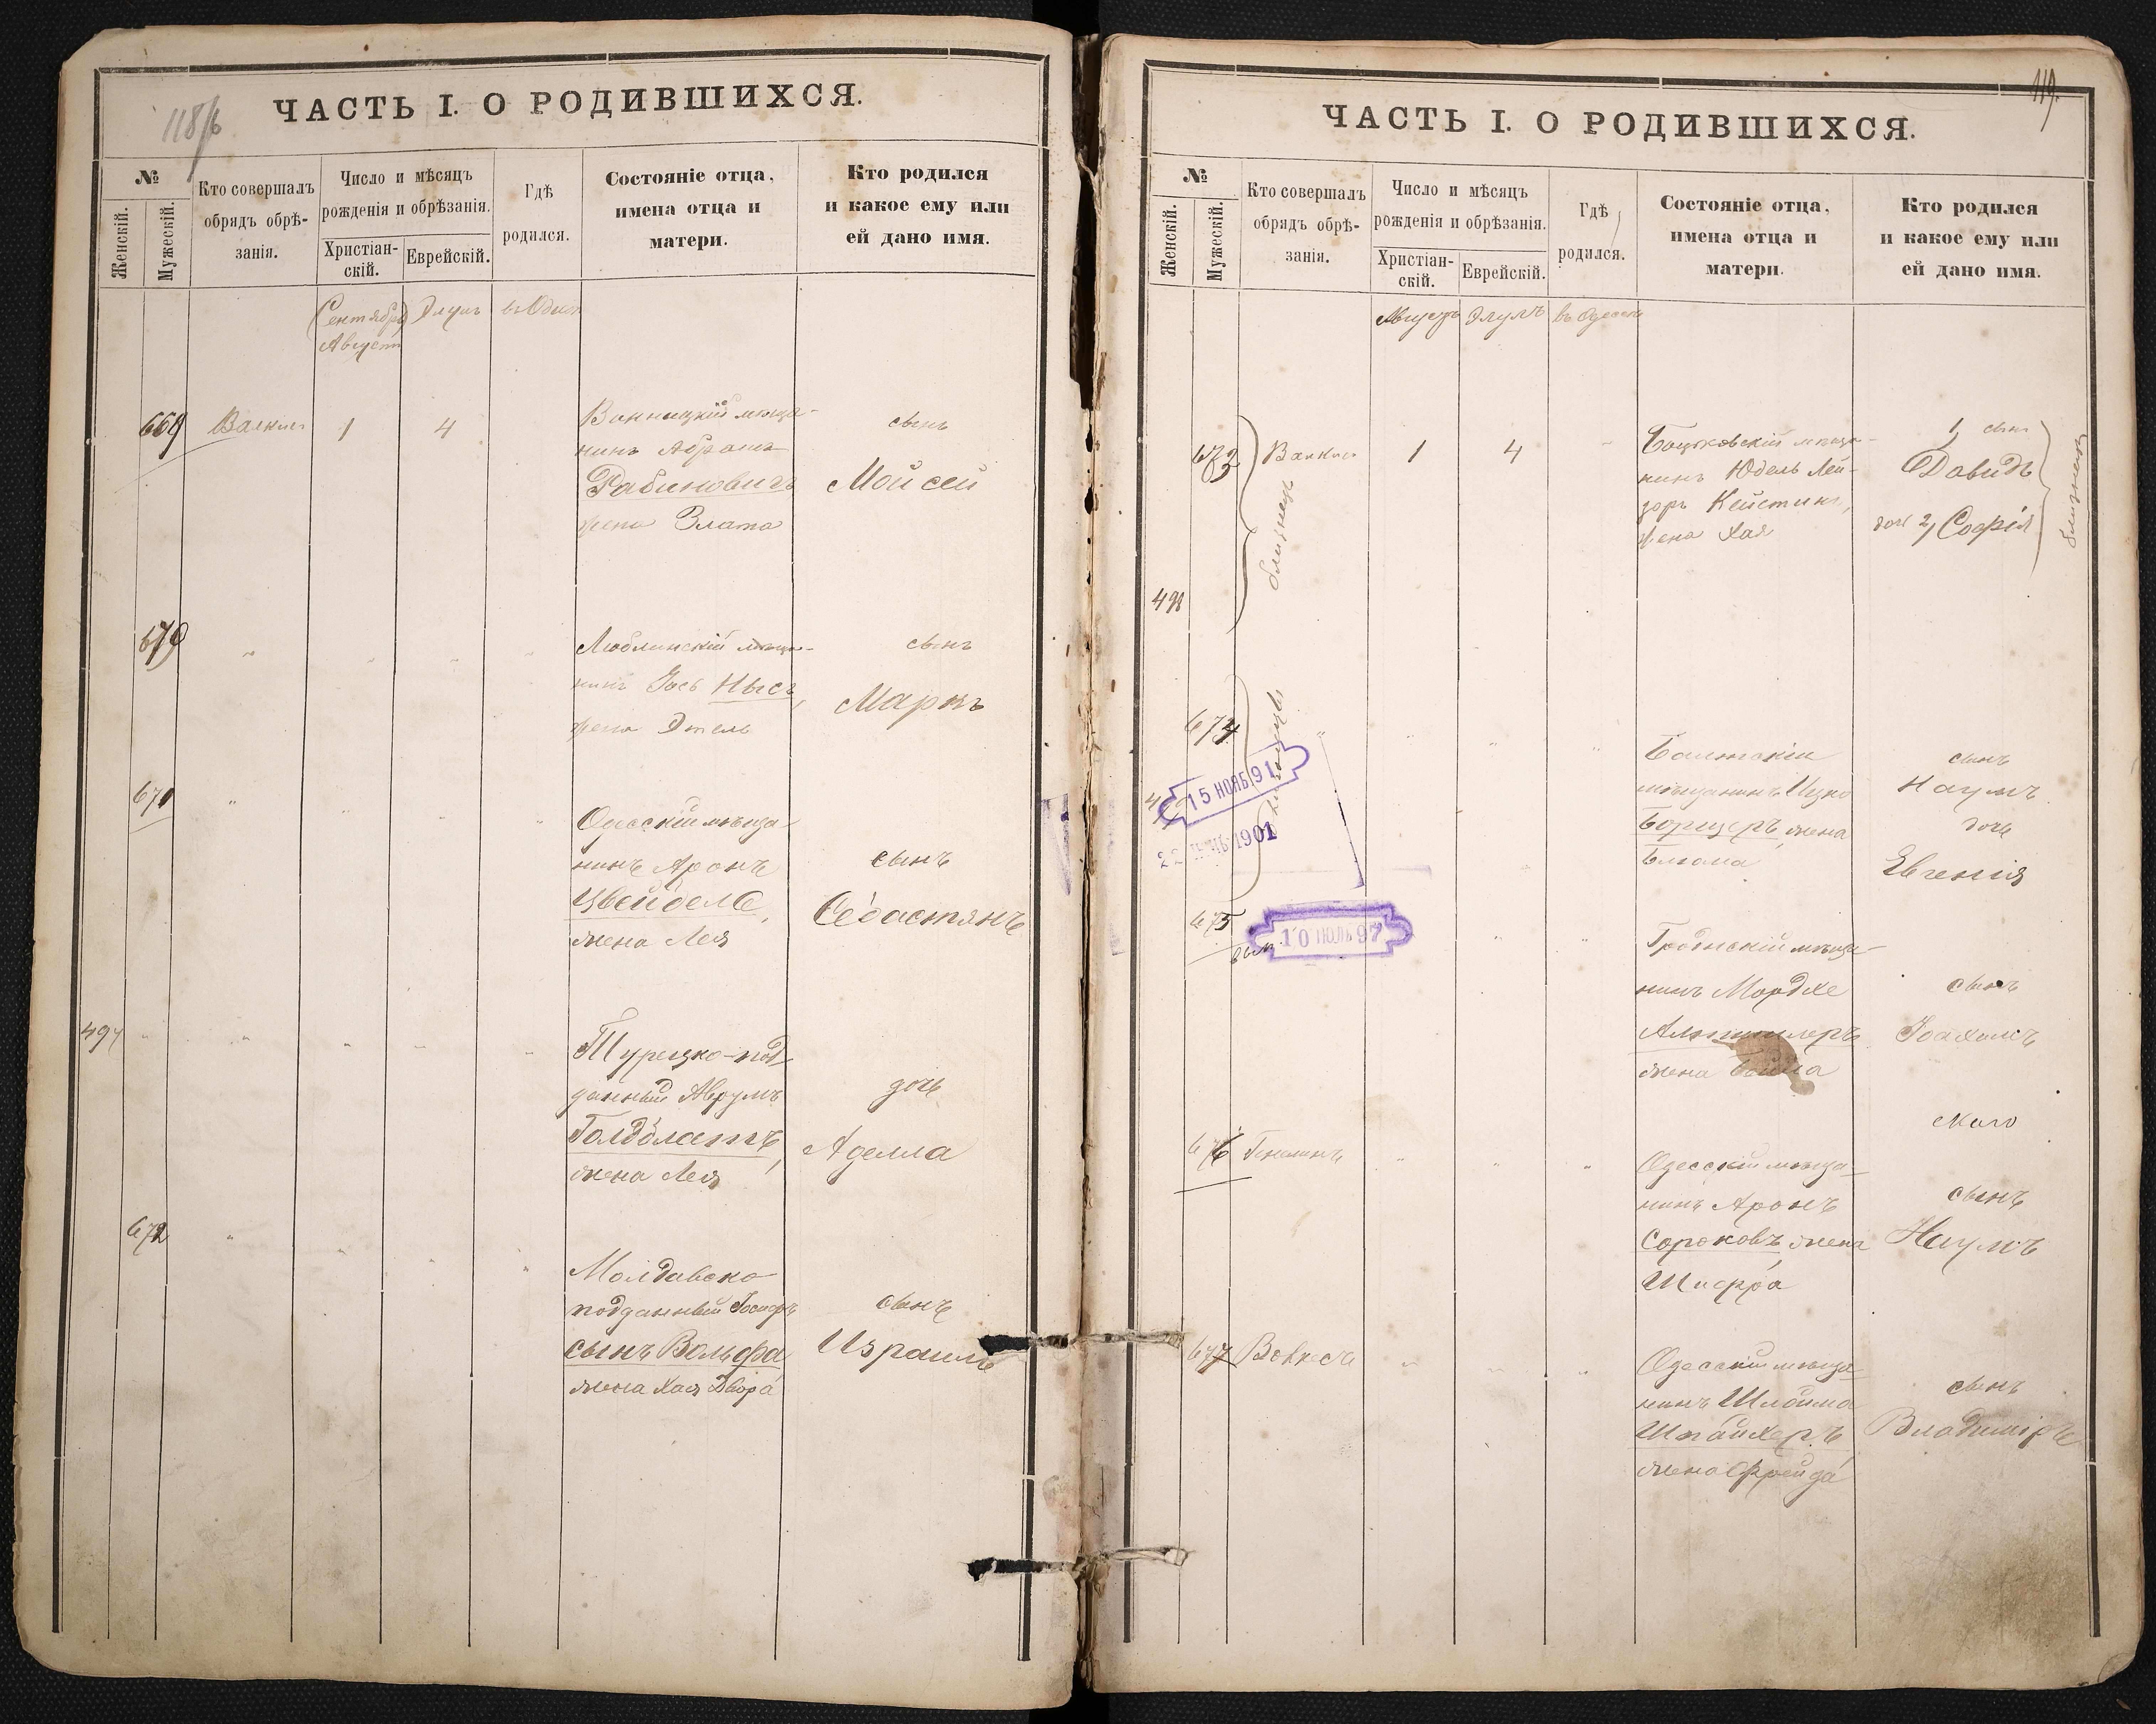 118/б
ЧАСТЬ I. О РОДИВШИХСЯ.
№
Женскій.
Мужескій.
Кто совершалъ
обрядъ обрѣ-
занія.
Число и мѣсяцъ
рожденія и обрѣзанія.
Христіан-
скій.
Еврейскій.
Гдѣ
родился.
Состояніе отца,
имена отца и
матери.
Кто родился
и какое ему или
ей дано имя.
(Сентябрь) Элулъ
Августъ
669 1 4
нинъ Абрамъ
Рабиновичъ
жена Злата
сынъ
Мойсей
670
Люблинскій мѣща-
нинъ Нысъ,
жена Этель
сынъ
Маркъ
671
Одесскій мѣща-
нинъ Аронъ
Цвейдель,
жена Лея
сынъ
Себастянъ
497
Турецко-под-
данный Аврумъ
Голдблатъ,
жена Лея
дочь
Аделла
672
Молдавско
подданный Iосифъ
сынъ Вольфа
жена Хая Двора
сынъ
Израиль
119.
ЧАСТЬ I. О РОДИВШИХСЯ.
№
Женскій.
Мужескій.
Кто совершалъ
обрядъ обрѣ-
занія.
Число и мѣсяцъ
рожденія и обрѣзанія.
Христіан-
скій.
Еврейскій.
Гдѣ
родился.
Состояніе отца,
имена отца и
матери.
Кто родился
и какое ему или
ей дано имя.
Августъ Элулъ въ Одессѣ
673 1 4
близнецы
498
мѣща-
нинъ Юдель Лей-
зоръ
жена Хая
1, сынъ
Давидъ
дочь 2, Софія
близнецы
674
близнецы
15 НОЯБ 91
1901
мѣщанинъ Ицко
жена
Блюма
сынъ
Наумъ
дочь
Евгенія
675
10 97
Гродненскій мѣща-
нинъ Мордхе
жена Бейла
сынъ
Iоахимъ
676
Одесскій мѣща-
нинъ Аронъ
Сороковъ, жена
Шифра
сынъ
Наумъ
677
Одесскій мѣща-
нинъ Шлойма
Шпайхеръ,
жена Фрейда
сынъ
Владиміръ